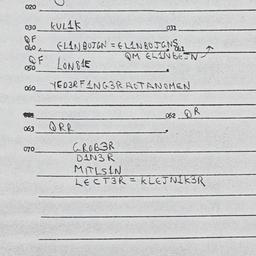 020
030 KUL1K 031
QF
040 EL1NBOJGN = EL1NBOJGNS 041
QM EL1NBEJN
QF
050 LON81E
060 YED3RF1NG3RAOTANOMEN
062 QR
063 QRR
070 GROB3R
D1N3R
M1TLS1N
LECT3R = KLEJN1K3R